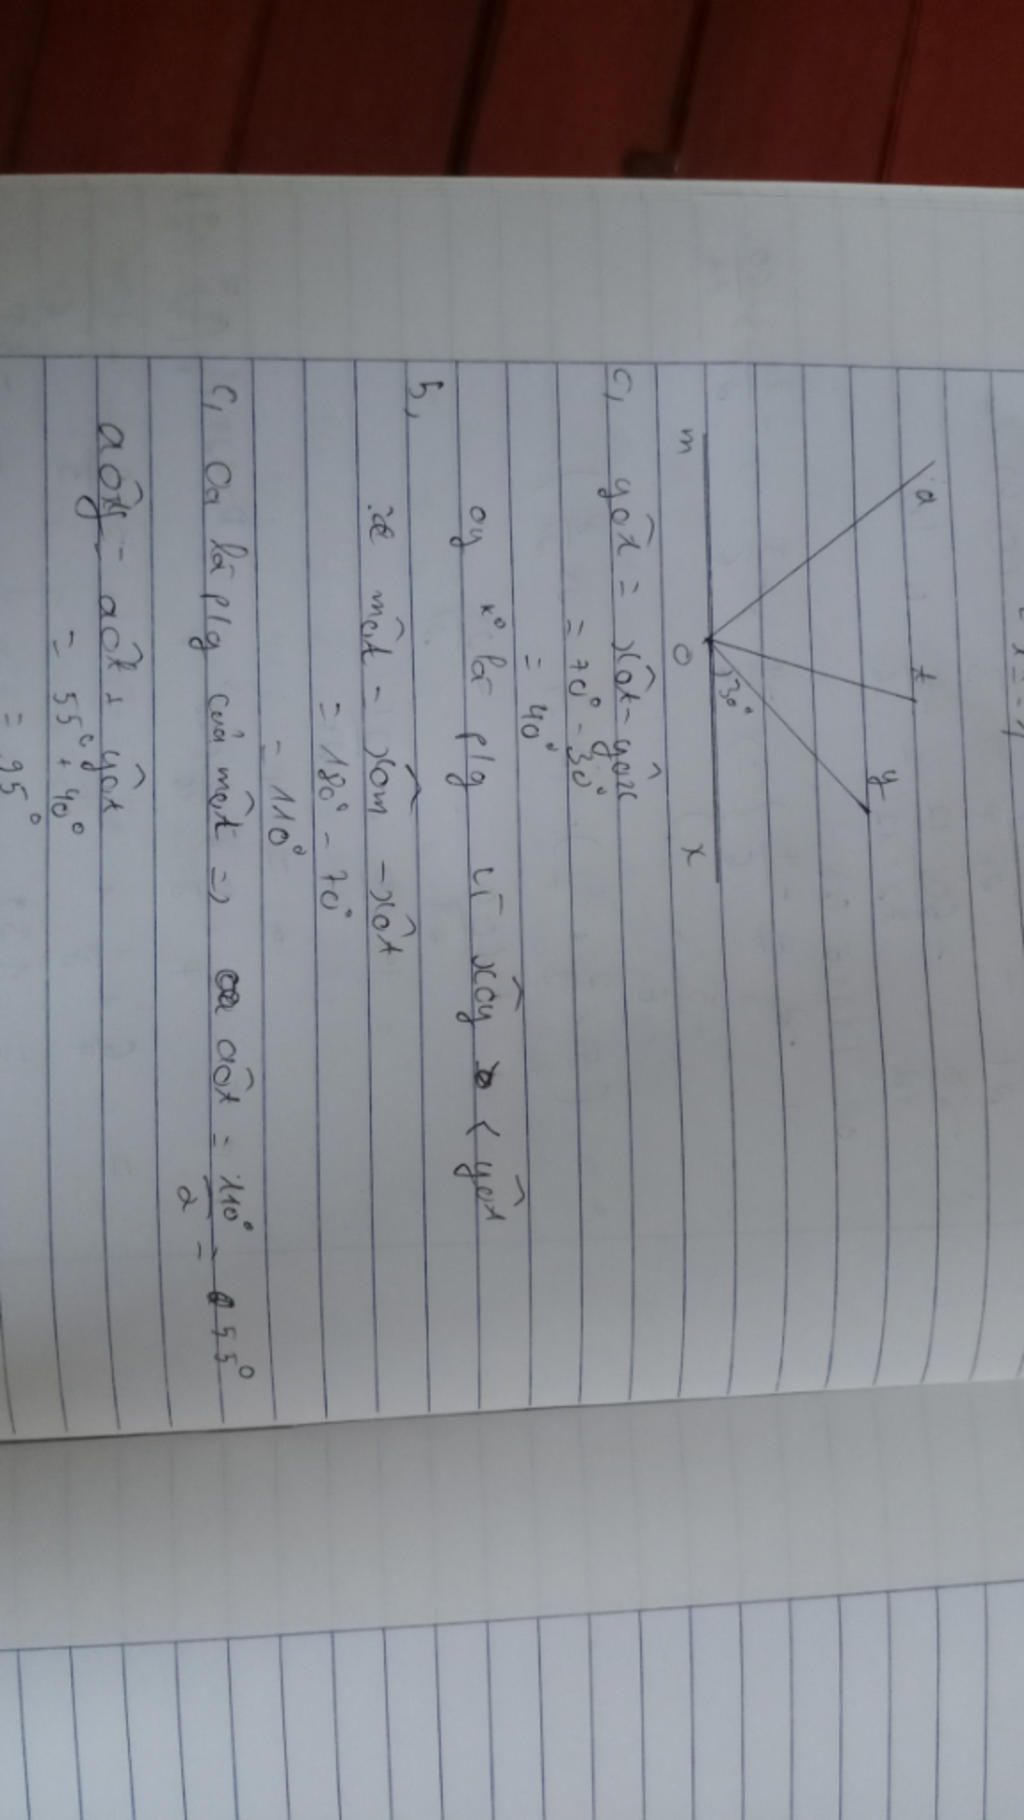 a
t
y
30°
m
O
x
c, yôt = xôt - yôx
= 70° - 30°
= 40°
oy k° là p/g vì xôy < yôt
b,
môt = xôm - xôt
= 180° - 70°
= 110°
c, Oa là p/g của môt => aôt = 110° / 2 = 55°
aôy = aôt + yôt
= 55° + 40°
= 95°